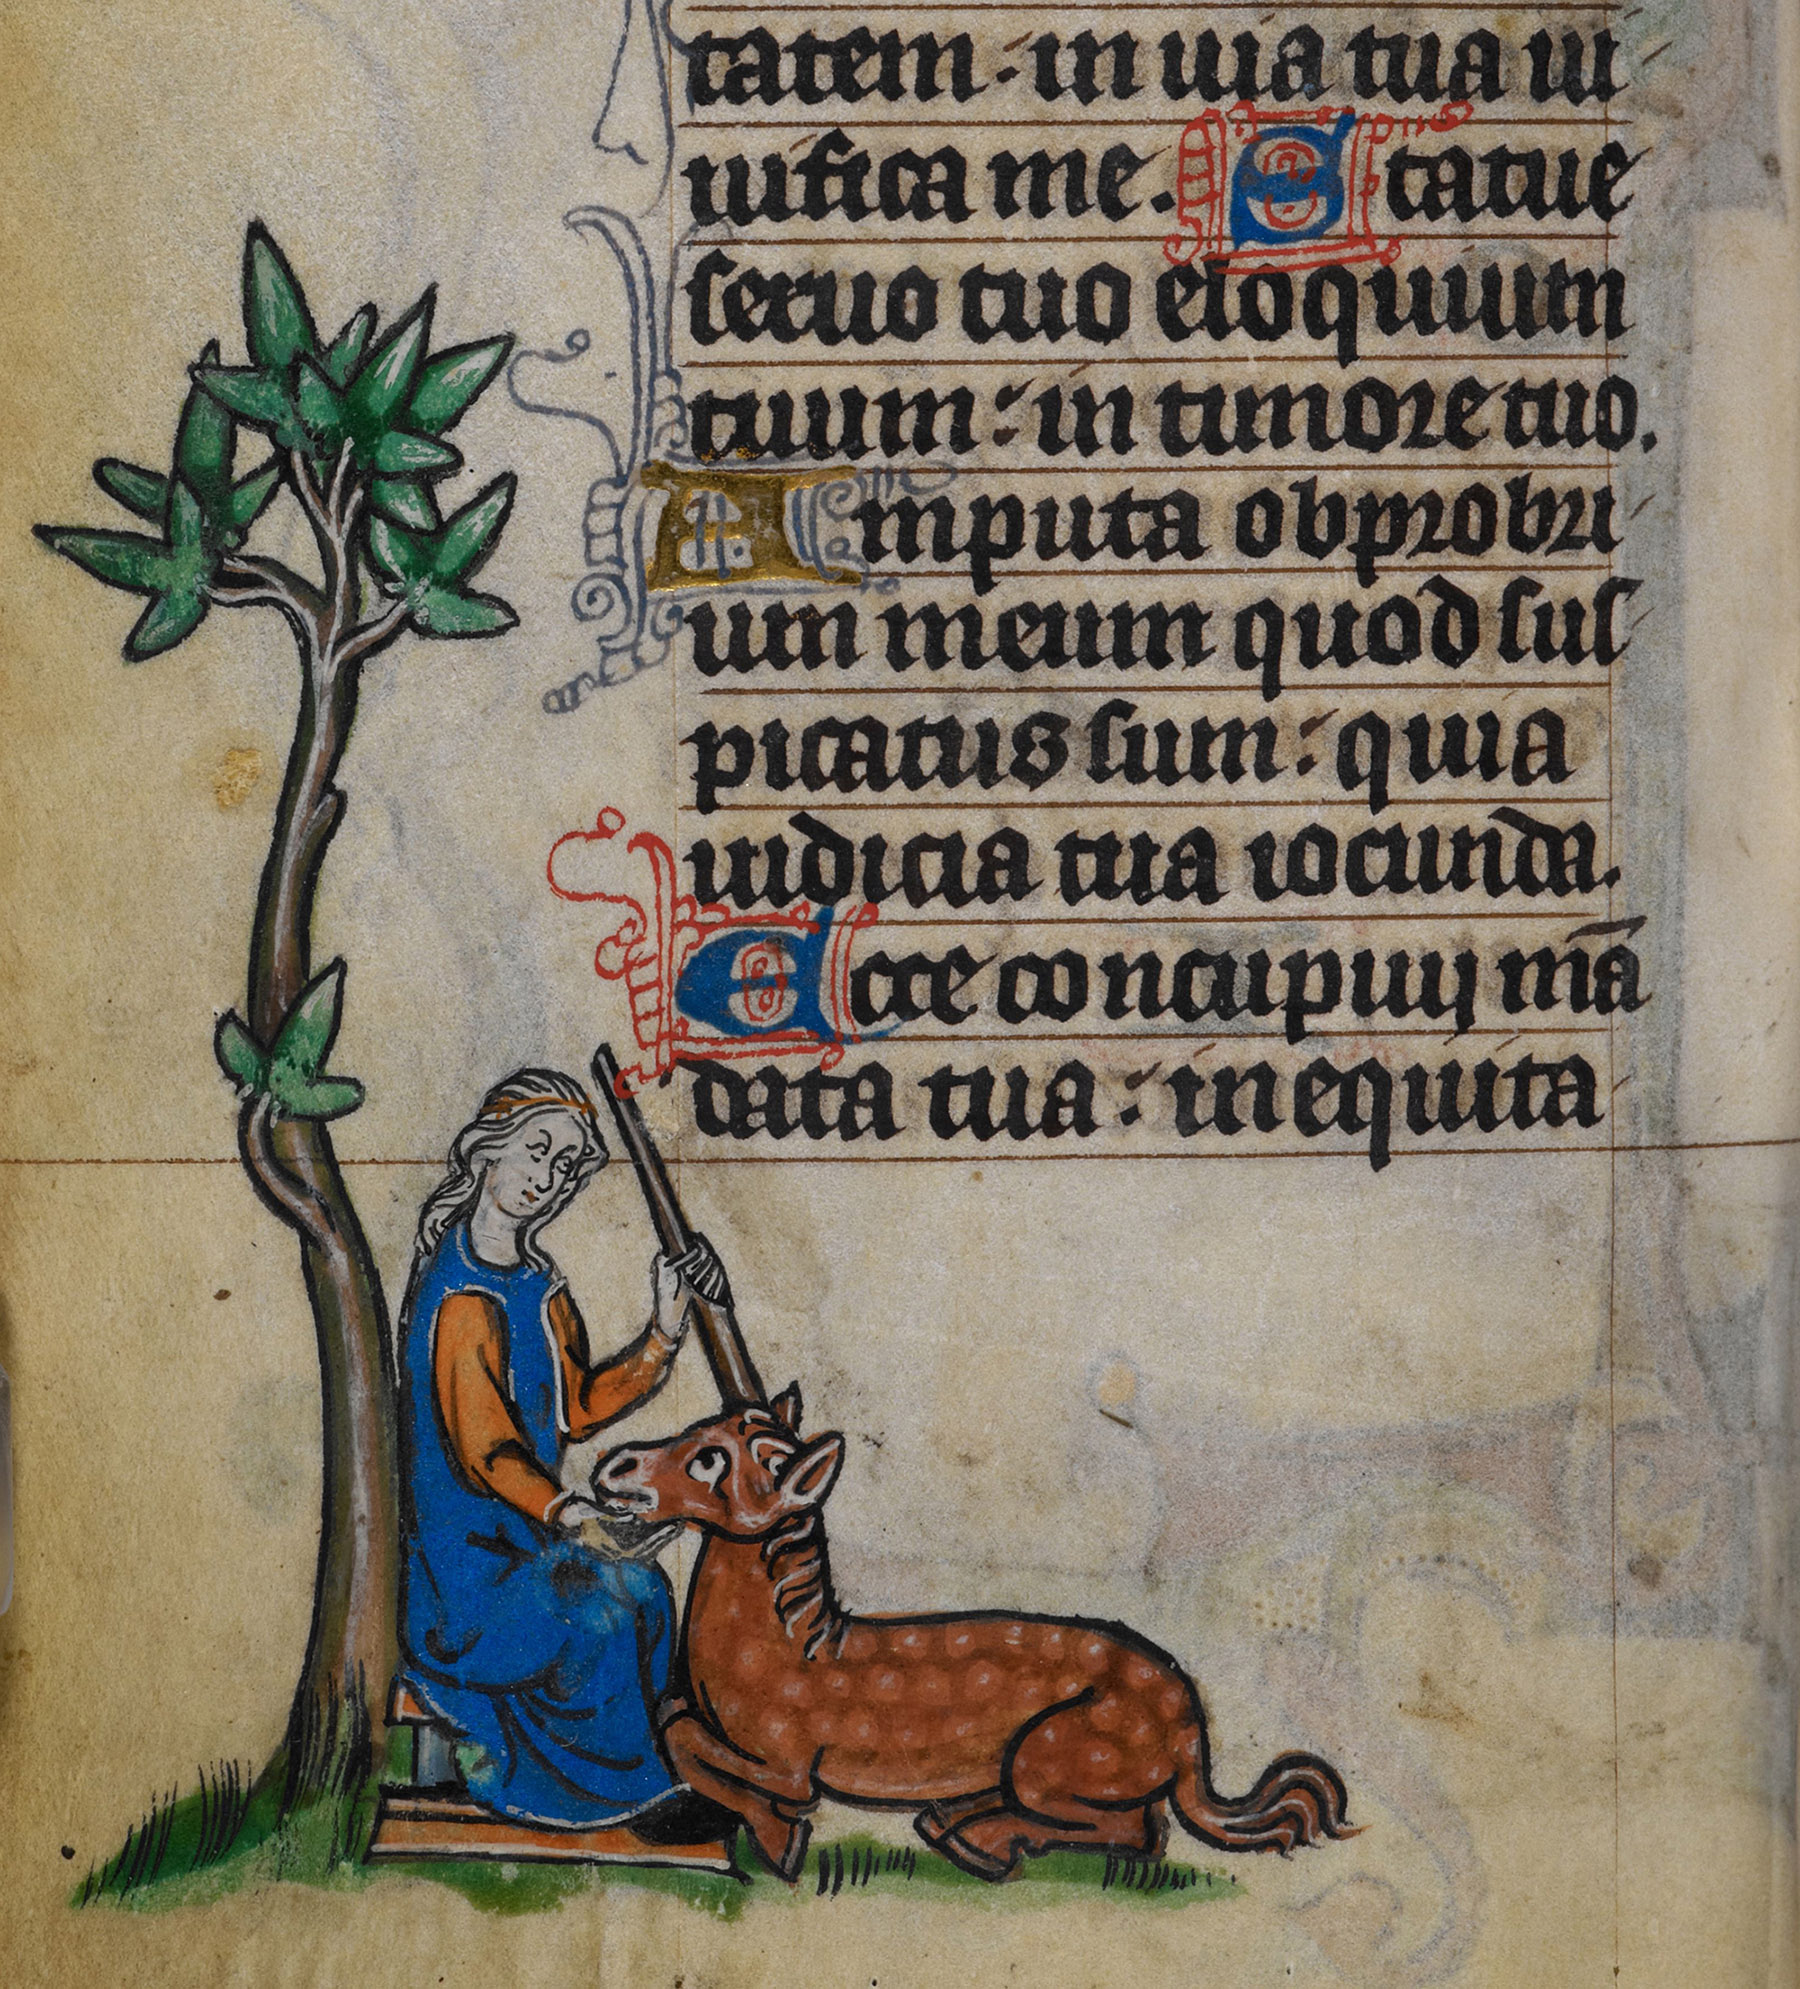 tatem · in uia tua ui
uifica me. Statue
seruo tuo eloquium
tuum : in timore tuo.
Amputa obprobri
um meum quod sus
picatus sum : quia
iudicia tua iocunda.
Ecce concupiuij mā
data tua : in equita